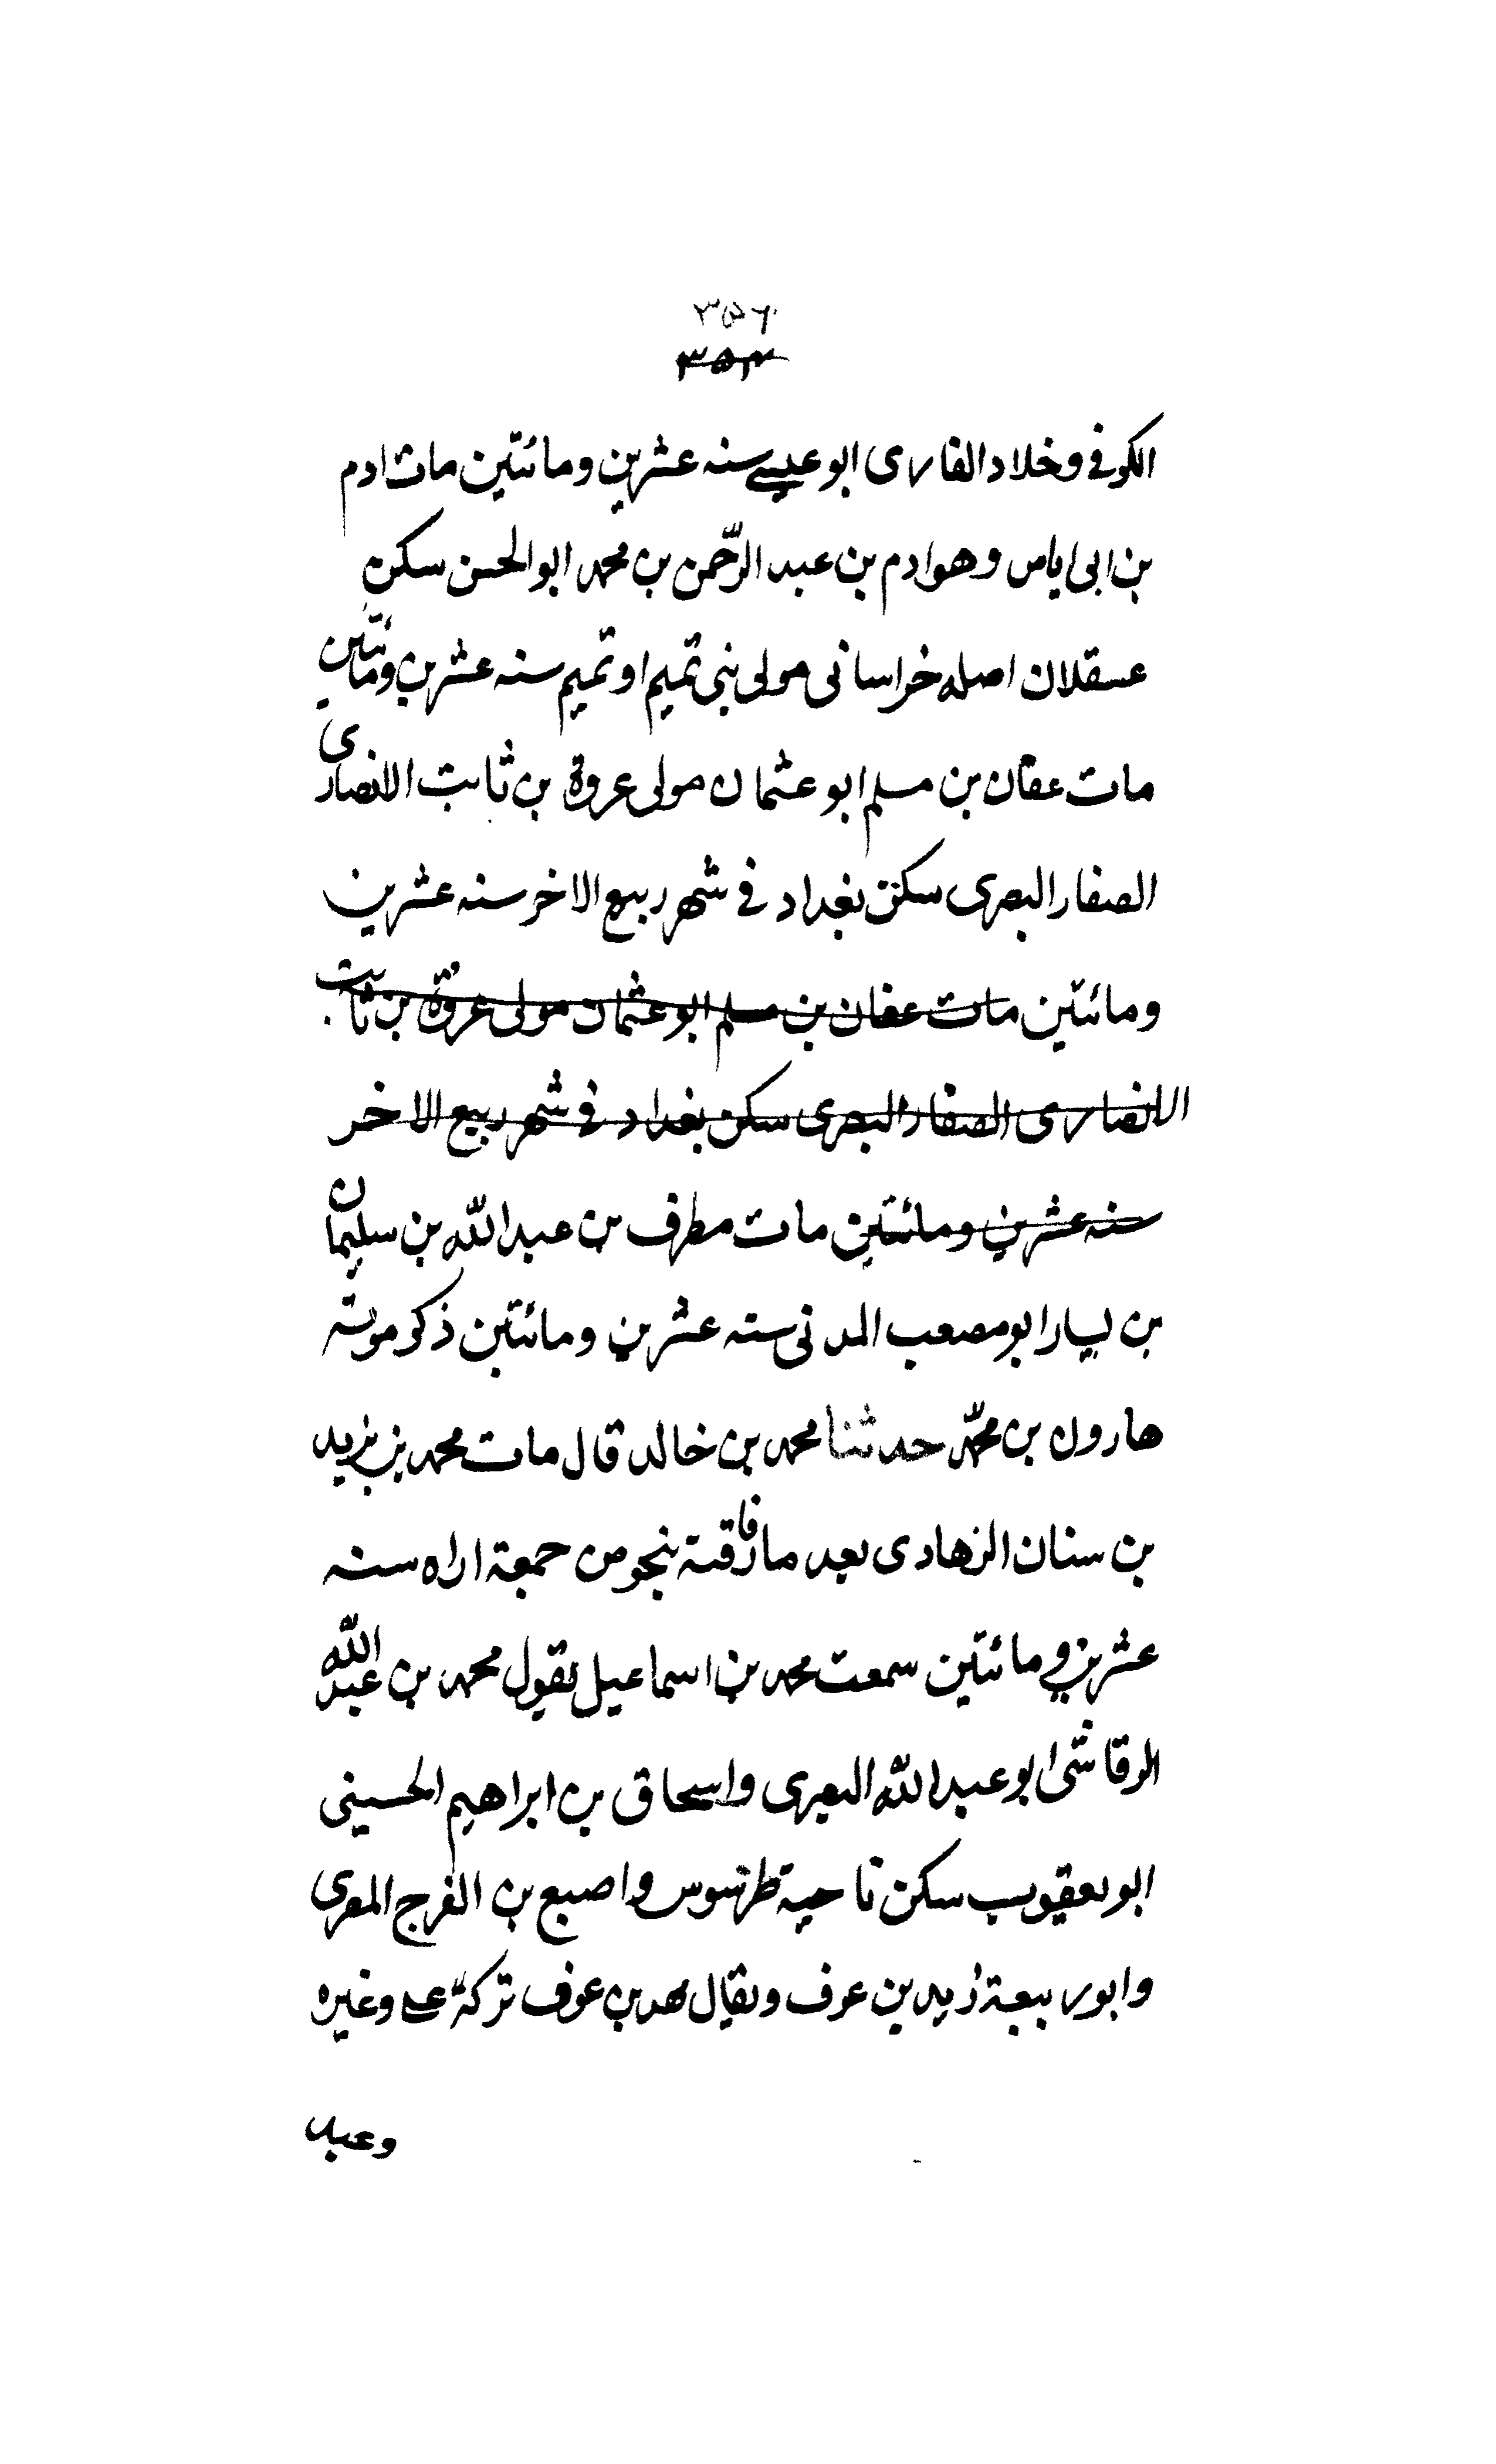 ٣٥٦
٣٥٣
الكوفى وخلاد القارى ابو عيسى سنه عشرين ومائتين مات ادم
بن ابى اياس وهو ادم بن عبد الرّحمن بن محمد ابو الحسن سكن
عسقلان اصله خراسانى مولى بنى تميم او تميم سنه عشرين ومائتين
مات عفان بن مسلم ابو عثمان مولى عروة بن ثابت الانصارى
الصفار البصرى سكن بغداد فى شهر ربيع الاخر سنه عشرين
ومائتين مات عفان بن مسلم ابو عثمان مولى عروة بن ثابت
الانصارى الصفار البصرى سكن بغداد فى شهر ربيع الاخر
سنه عشرين ومائتين مات مطرف بن عبد الله بن سليمان
بن يسار ابو مصعب المدنى سنه عشرين ومائتين ذكر موته
هارون بن محمّد حدثنا محمد بن خالد قال مات محمد بن يزيد
بن سنان الزهادى بعد ما فارقته بنحو من جمعة اراه سنه
عشرين ومائتين سمعت محمد بن اسماعيل يقول محمد بن عبد الله
الرقاشى ابو عبد الله البصرى واسحاق بن ابراهيم الحسينى
ابو يعقوب سكن ناحية طرسوس واصبع بن الفرج المصرى
وابو ربيعة زيد بن عوف ويقال فهد بن عوف تركه على وغيره
وعبد